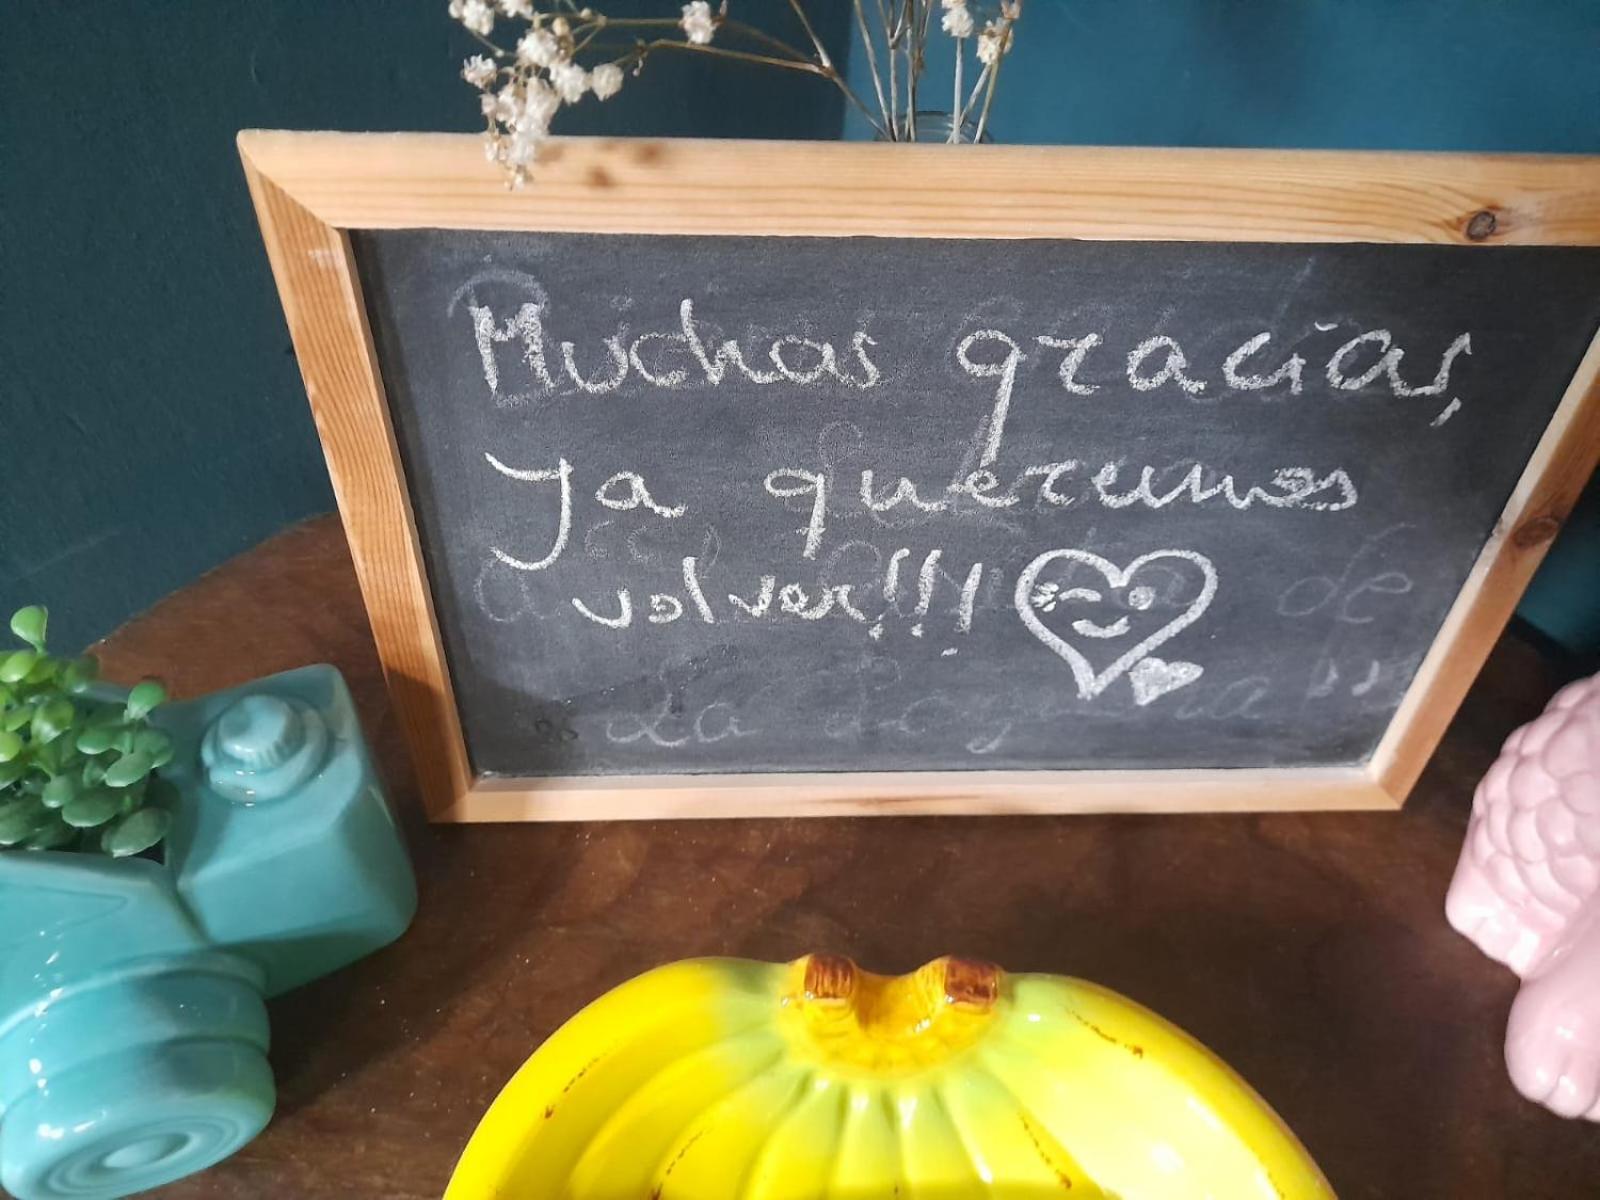 Muchas gracias,
Ya queremos
volver!!!
a de
La